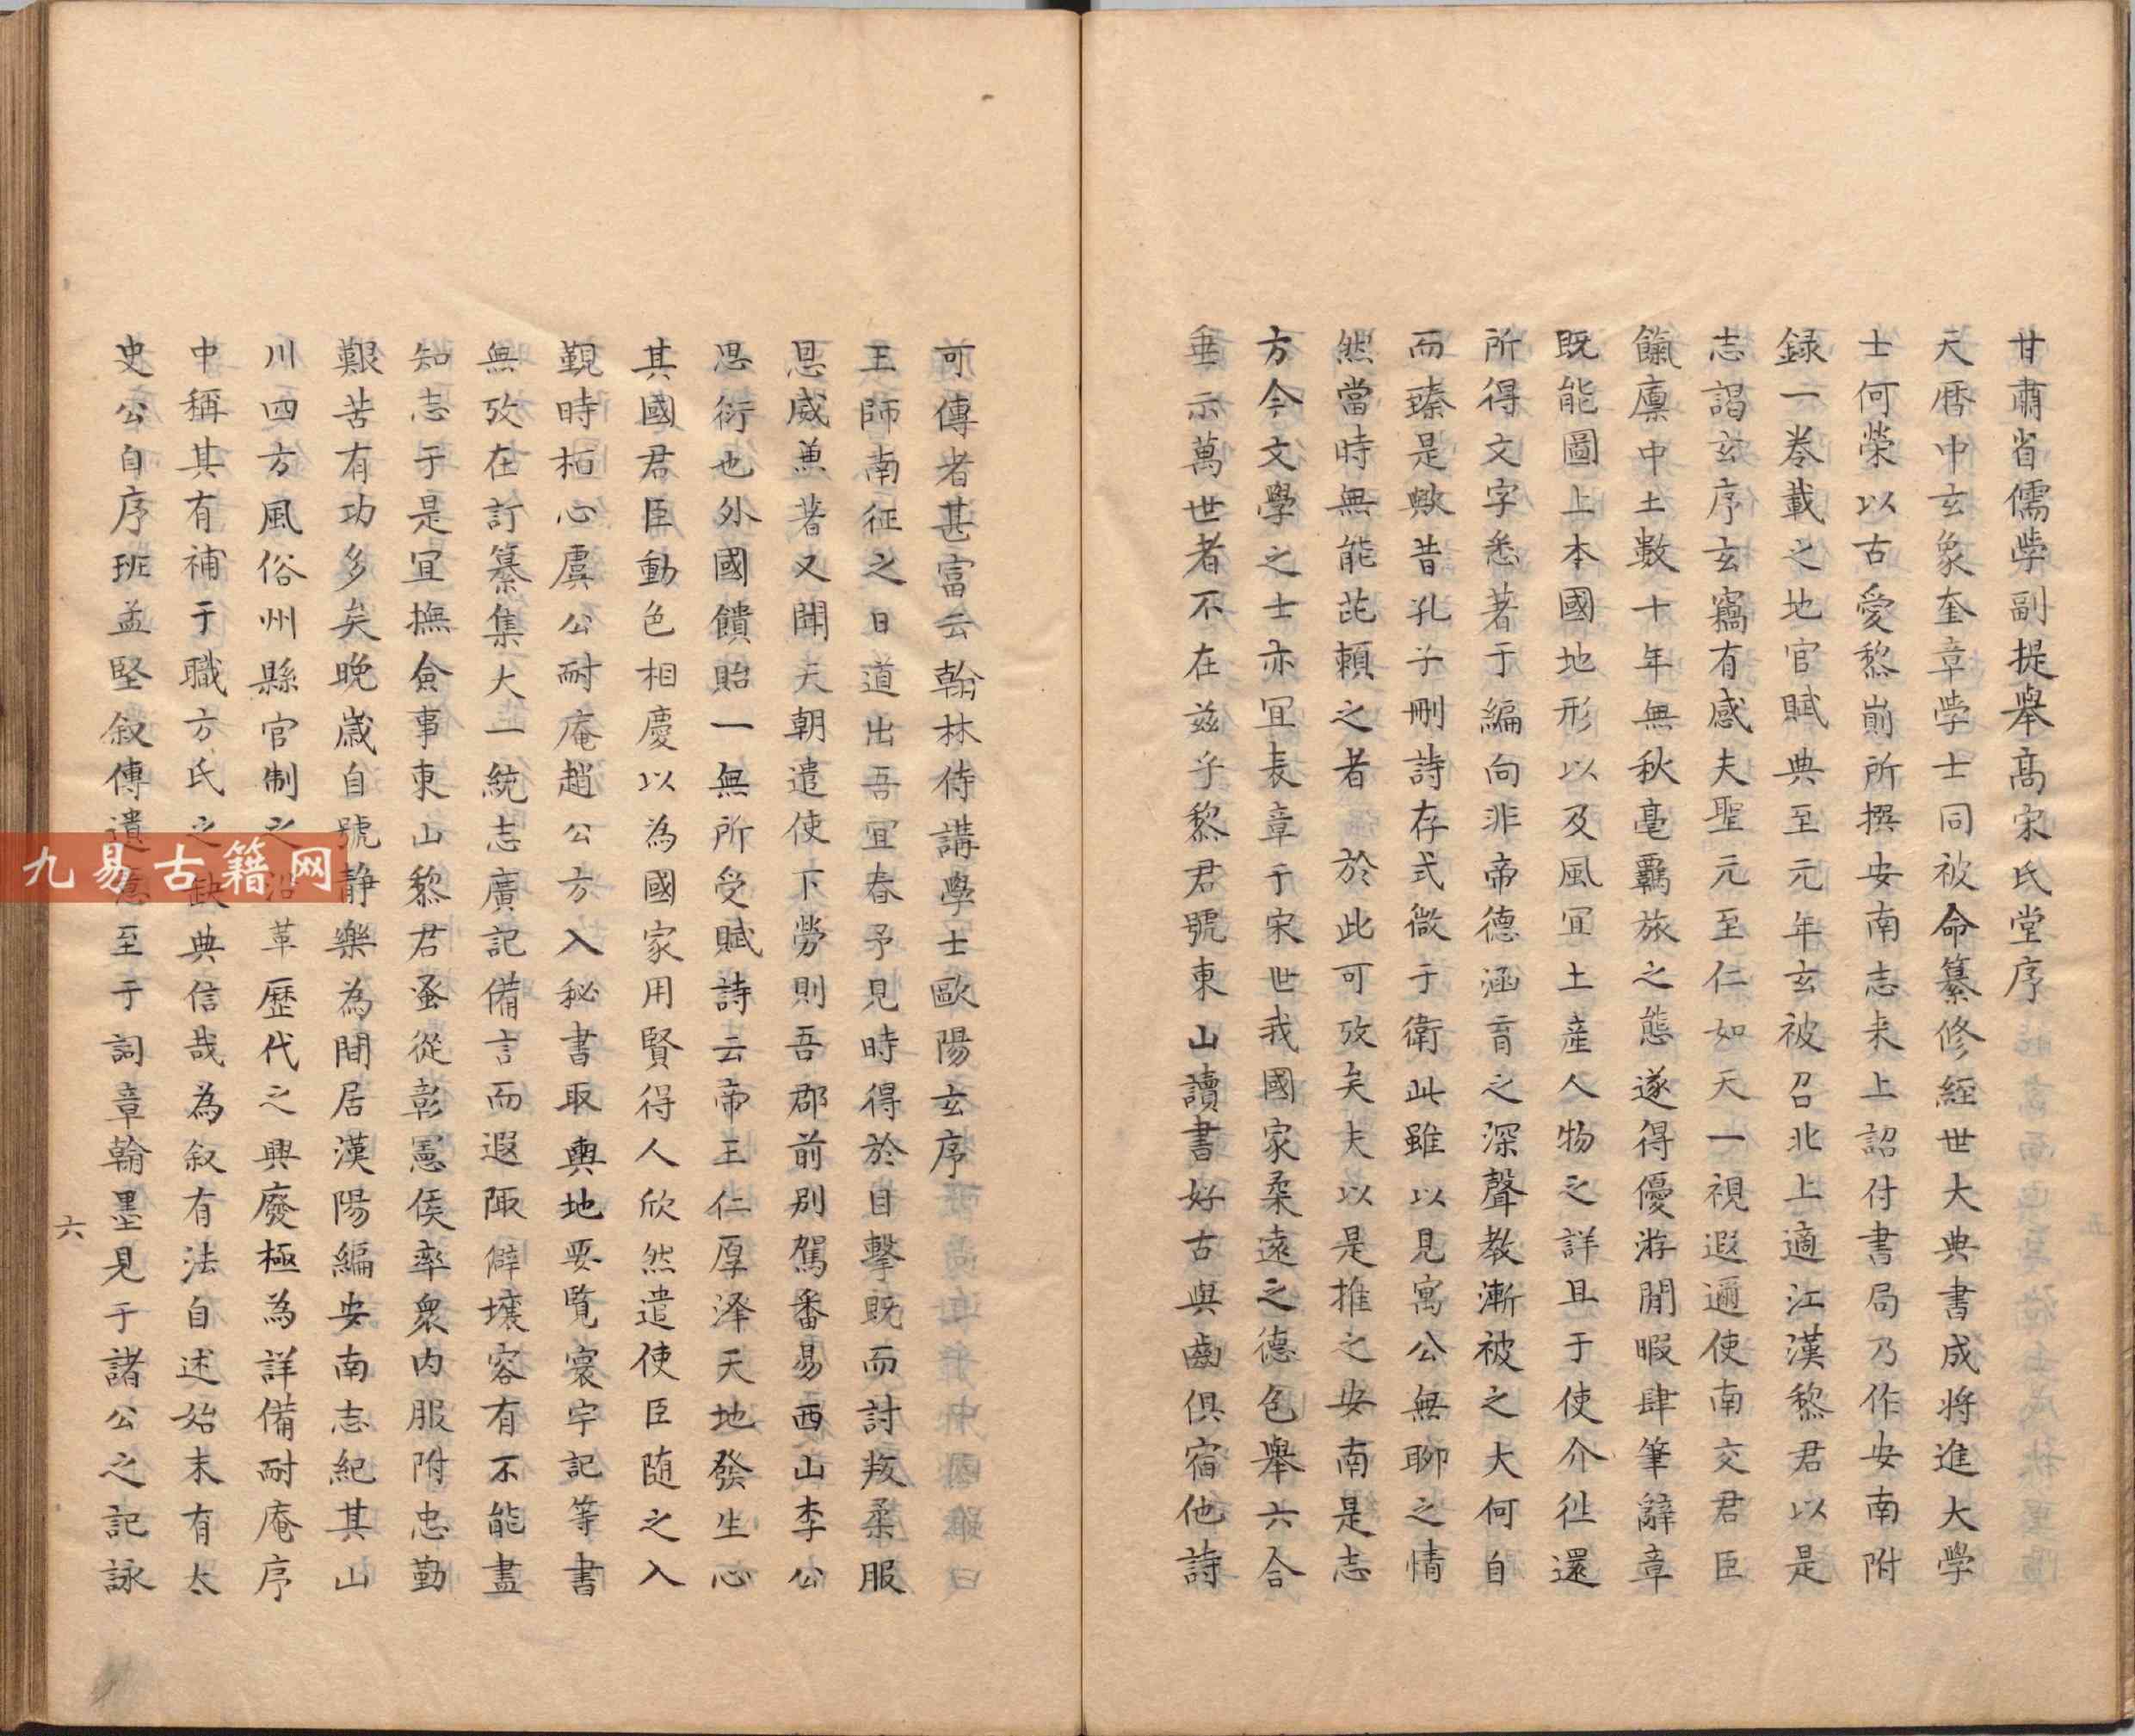 甘肅省儒學副提舉髙宋氏堂序
天曆中玄象奎章學士同被命纂修經世大典書成將進大學
士何榮以古愛黎崱所撰安南志未上詔付書局乃作安南附
録一卷載之地官賦典至元年玄被召北上適江漢黎君以是
志謁玄序玄竊有感夫聖元至仁如天一視遐邇使南交君臣
餼廩中土數十年無秋毫羈旅之態遂得優游閒暇肆筆辭章
既能圖上本國地形以及風宜土產人物之詳且于使介徃還
所得文字悉著于編向非帝德涵育之深聲教漸被之大何自
而臻是歟昔孔子刪詩存式微于衛此雖以見寓公無聊之情
然當時無能芘賴之者於此可攷矣夫以是推之安南是志
方今文學之士亦宜表章于宋世我國家柔遠之德包舉六合
垂示萬世者不在茲乎黎君號東山讀書好古與齒俱宿他詩
可傳者甚富云翰林侍講學士歐陽玄序
王師南征之日道出吾宜春予見時得於目擊既而討叛柔服
恩威兼著又聞天朝遣使下勞則吾郡前别駕番易西山李公
思衍也外國饋貽一無所受賦詩云帝王仁厚澤天地發生心
其國君臣動色相慶以為國家用賢得人欣然遣使臣随之入
覲時栢心虞公耐庵趙公方入秘書取輿地要覧寰宇記等書
無攷在訂纂集大一統志廣記備言而遐陬僻壤容有不能盡
知志于是宜撫僉事東山黎君蚤從彰憲侯率衆内服附忠勤
艱苦有功多矣晚歲自號静樂為閒居漢陽編安南志紀其山
川四方風俗州縣官制之沿革歷代之興廢極為詳備耐庵序
中稱其有補于職方氏之缺典信哉為叙有法自述始末有太
史公自序班孟堅叙傳遺意至于詞章翰墨見于諸公之記詠
六
九易古籍网